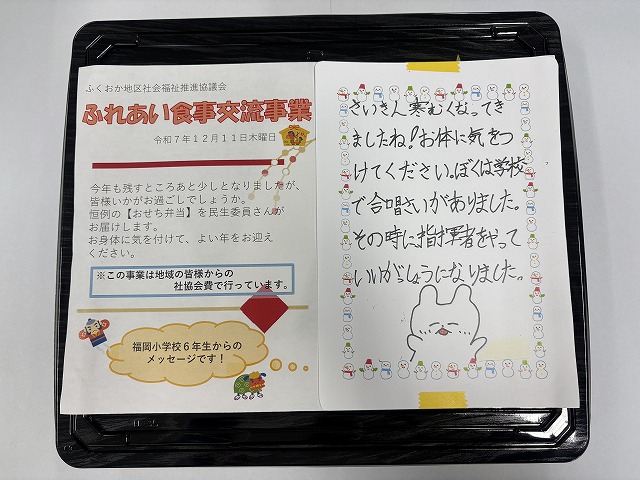 ふくおか地区社会福祉推進協議会
ふれあい食事交流事業
令和7年12月11日木曜日
今年も残すところあと少しとなりましたが、
皆様いかがお過ごしでしょうか。
恒例の【おせち弁当】を民生委員さんが
お届けします。
お身体に気を付けて、よい年をお迎え
ください。
※この事業は地域の皆様からの
社協会費で行っています。
福岡小学校6年生からの
メッセージです!
さいきん寒むくなってき
ましたね!お体に気をつ
けてください。ぼくは学校
で合唱さいがありました。
その時に指揮者をやって
いいがっしょうになりました。